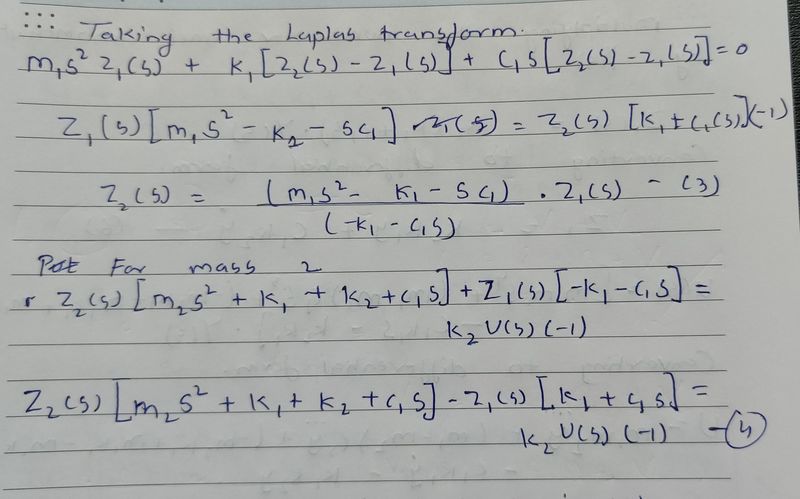 Taking the Laplas transform.
m₁s² Z₁(s) + K₁[Z₂(s) - Z₁(s)] + C₁S[Z₂(s) - Z₁(s)] = 0
Z₁(s)[m₁s² - K₂ - SC₁] = Z₂(s) [K₁ + C₁(s)](-1)
Z₂(s) = (m₁s² - K₁ - SC₁) . Z₁(s) - (3)
(-K₁ - C₁s)
For mass 2
Z₂(s)[m₂s² + K₁ + K₂ + C₁s] + Z₁(s) [-K₁ - C₁s] =
K₂ U(s) (-1)
Z₂(s) [m₂s² + K₁ + K₂ + C₁s] - Z₁(s) [K₁ + C₁s] =
K₂ U(s) (-1) - (4)